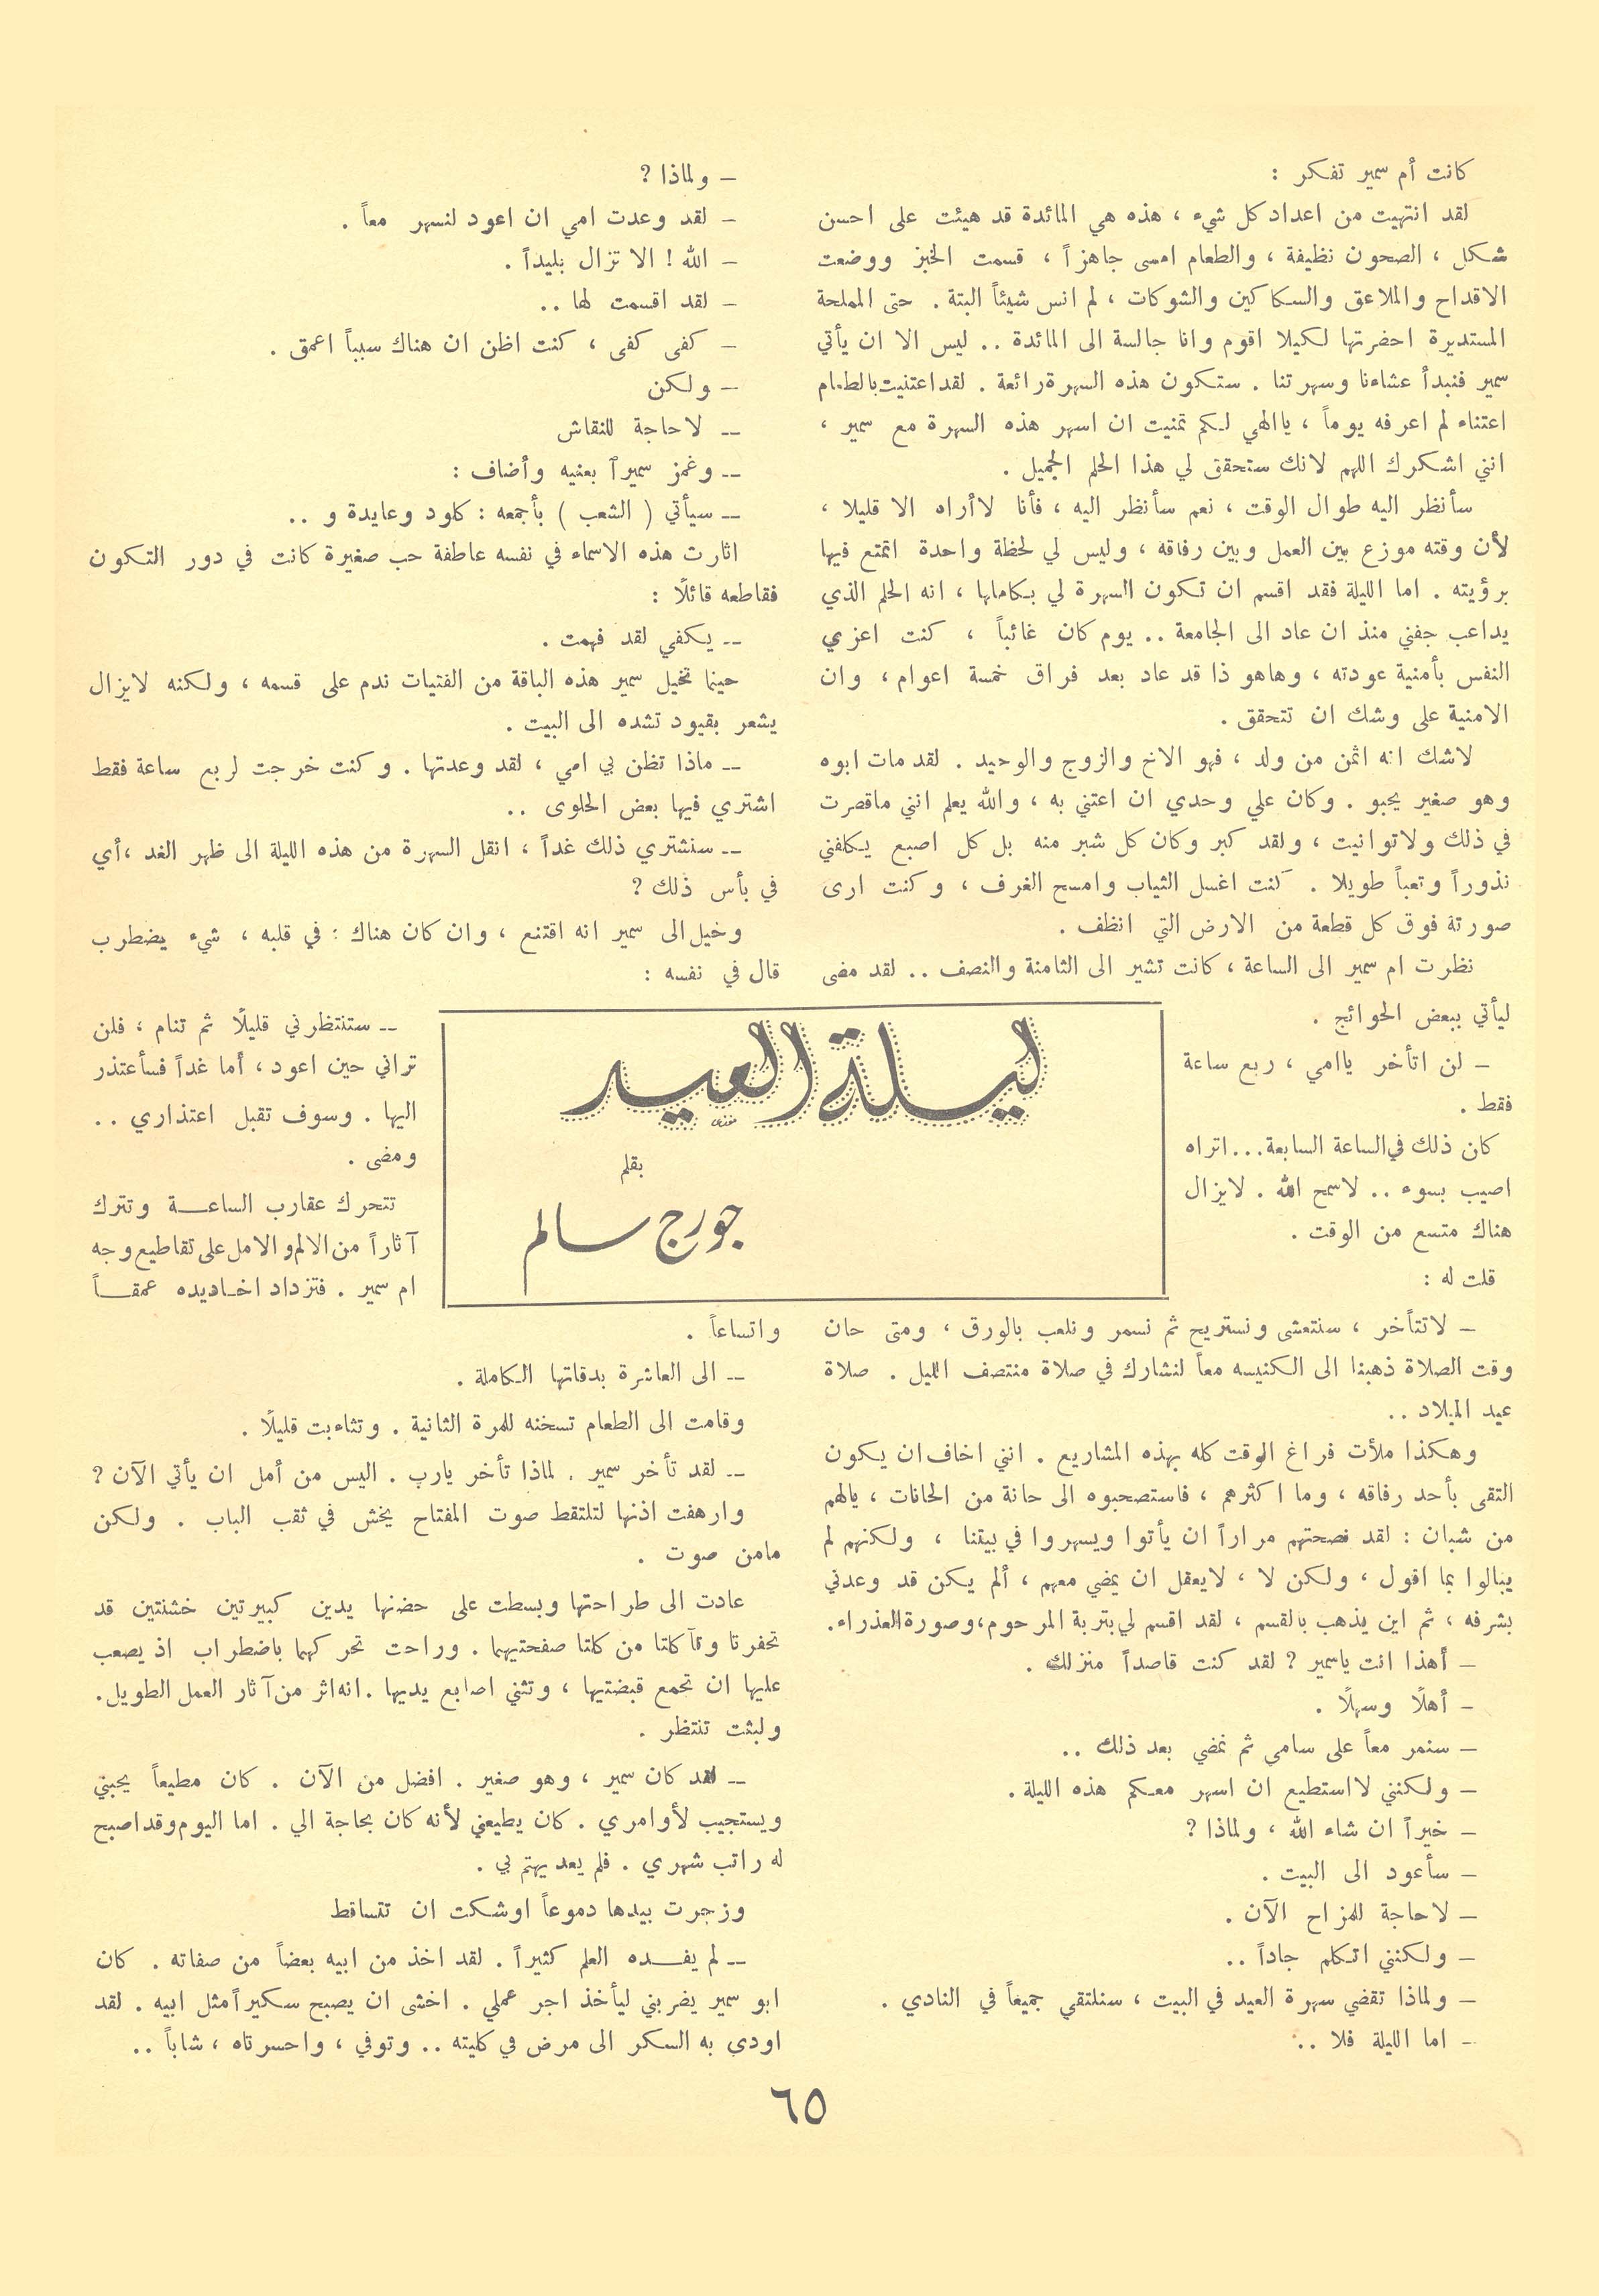 ليلة العيد
بقلم
جورج سالم
كانت أم سمير تفكر :
لقد انتهيت من اعداد كل شيء ، هذه هي المائدة قد هيئت على احسن
شكل ، الصحون نظيفة ، والطعام امسى جاهزاً ، قسمت الخبز ووضعت
الاقداح والملاعق والسكاكين والشوكات ، لم انس شيئاً البتة . حتى المملحة
المستديرة احضرتها لكيلا اقوم وانا جالسة الى المائدة .. ليس الا ان يأتي
سمير فنبدأ عشاءنا وسهرتنا . ستكون هذه السهرة رائعة . لقد اعتنيت بالطعام
اعتناء لم اعرفه يوماً ، ياالهي لكم تمنيت ان اسهر هذه السهرة مع سمير ،
انني اشكرك اللهم لانك ستحقق لي هذا الحلم الجميل .
سأنظر اليه طوال الوقت ، نعم سأنظر اليه ، فأنا لاأراه الا قليلا ،
لأن وقته موزع بين العمل وبين رفاقه ، وليس لي لحظة واحدة اتمتع فيها
برؤيته . اما الليلة فقد اقسم ان تكون السهرة لي بكاملها ، انه الحلم الذي
يداعب جفني منذ ان عاد الى الجامعة .. يوم كان غائباً ، كنت اعزي
النفس بأمنية عودته ، وهاهو ذا قد عاد بعد فراق خمسة اعوام ، وان
الامنية على وشك ان تتحقق .
لاشك انه اثمن من ولد ، فهو الاخ والزوج والوحيد . لقد مات ابوه
وهو صغير يحبو . وكان علي وحدي ان اعتني به ، والله يعلم انني ماقصرت
في ذلك ولاتوانيت ، ولقد كبر وكان كل شبر منه بل كل اصبع يكلفني
نذوراً وتعباً طويلا . كنت اغسل الثياب وامسح الغرف ، وكنت ارى
صورتة فوق كل قطعة من الارض التي انظف .
نظرت ام سمير الى الساعة ، كانت تشير الى الثامنة والنصف .. لقد مضى
ليأتي ببعض الحوائج .
– لن اتأخر ياامي ، ربع ساعة
فقط .
كان ذلك في الساعة السابعة... اتراه
اصيب بسوء .. لاسمح الله . لايزال
هناك متسع من الوقت .
قلت له :
– لاتتأخر ، سنتعشى ونستريح ثم نسمر ونلعب بالورق ، ومتى حان
وقت الصلاة ذهبنا الى الكنيسه معاً لنشارك في صلاة منتصف الليل . صلاة
عيد الميلاد ..
وهكذا ملأت فراغ الوقت كله بهذه المشاريع . انني اخاف ان يكون
التقى بأحد رفاقه ، وما اكثرهم ، فاستصحبوه الى حانة من الحانات ، يالهم
من شبان : لقد نصحتهم مراراً ان يأتوا ويسهروا في بيتنا ، ولكنهم لم
يبالوا بما اقول ، ولكن لا ، لايعقل ان يمضي معهم ، ألم يكن قد وعدني
بشرفه ، ثم اين يذهب بالقسم ، لقد اقسم لي بتربة المرحوم، وصورة العذراء.
– أهذا انت ياسمير ? لقد كنت قاصداً منزلك .
– أهلًا وسهلًا .
– سنمر معاً على سامي ثم نمضي بعد ذلك ..
– ولكنني لااستطيع ان اسهر معكم هذه الليلة .
– خيراً ان شاء الله ، ولماذا ?
– سأعود الى البيت .
– لاحاجة للمزاح الآن .
– ولكنني اتكلم جاداً ..
– ولماذا تقضي سهرة العيد في البيت ، سنلتقي جميعاً في النادي .
– اما الليلة فلا ..
– ولماذا ?
– لقد وعدت امي ان اعود لنسهر معاً .
– الله ! الا تزال بليداً .
– لقد اقسمت لها ..
– كفى كفى ، كنت اظن ان هناك سبباً اعمق .
– ولكن
– لاحاجة للنقاش
– وغمز سميراً بعنيه وأضاف :
– سيأتي ( الشعب ) بأجمعه : كلود وعايدة و ..
اثارت هذه الاسماء في نفسه عاطفة حب صغيرة كانت في دور التكون
فقاطعه قائلًا :
– يكفي لقد فهمت .
حينما تخيل سمير هذه الباقة من الفتيات ندم على قسمه ، ولكنه لايزال
يشعر بقيود تشده الى البيت .
– ماذا تظن بي امي ، لقد وعدتها . وكنت خرجت لربع ساعة فقط
اشتري فيها بعض الحلوى ..
– سنشتري ذلك غداً ، انقل السهرة من هذه الليلة الى ظهر الغد ،أي
في بأس ذلك ?
وخيل الى سمير انه اقتنع ، وان كان هناك : في قلبه ، شيء يضطرب
قال في نفسه :
– ستنتظرني قليلًا ثم تنام ، فلن
تراني حين اعود ، أما غداً فسأعتذر
اليها . وسوف تقبل اعتذاري ..
ومضى .
تتحرك عقارب الساعــة وتترك
آثاراً من الالم والامل على تقاطيع وجه
ام سمير . فتزداد اخاديده عمقــاً
واتساعاً .
– الى العاشرة بدقاتها الكاملة .
وقامت الى الطعام تسخنه للمرة الثانية . وتثاءبت قليلًا .
– لقد تأخر سمير . لماذا تأخر يارب . اليس من أمل ان يأتي الآن ?
وارهفت اذنها لتلتقط صوت المفتاح يخش في ثقب الباب . ولكن
مامن صوت .
عادت الى طراحتها وبسطت على حضنها يدين كبيرتين خشنتين قد
تحفرتا وتآكلتا من كلتا صفحتيهما . وراحت تحركهما باضطراب اذ يصعب
عليها ان تجمع قبضتيها ، وتثني اصابع يديها . انه اثر من آثار العمل الطويل.
ولبثت تنتظر .
– لقد كان سمير ، وهو صغير . افضل من الآن . كان مطيعاً يحبني
ويستجيب لأوامري . كان يطيعني لأنه كان بحاجة الي . اما اليوم وقد اصبح
له راتب شهري . فلم يعد يهتم بي .
وزجرت بيدها دموعاً اوشكت ان تتساقط
– لم يفــده العلم كثيراً . لقد اخذ من ابيه بعضاً من صفاته . كان
ابو سمير يضربني ليأخذ اجر عملي . اخشى ان يصبح سكيراً مثل ابيه . لقد
اودى به السكر الى مرض في كليته .. وتوفي ، واحسرتاه ، شاباً ..
٦٥